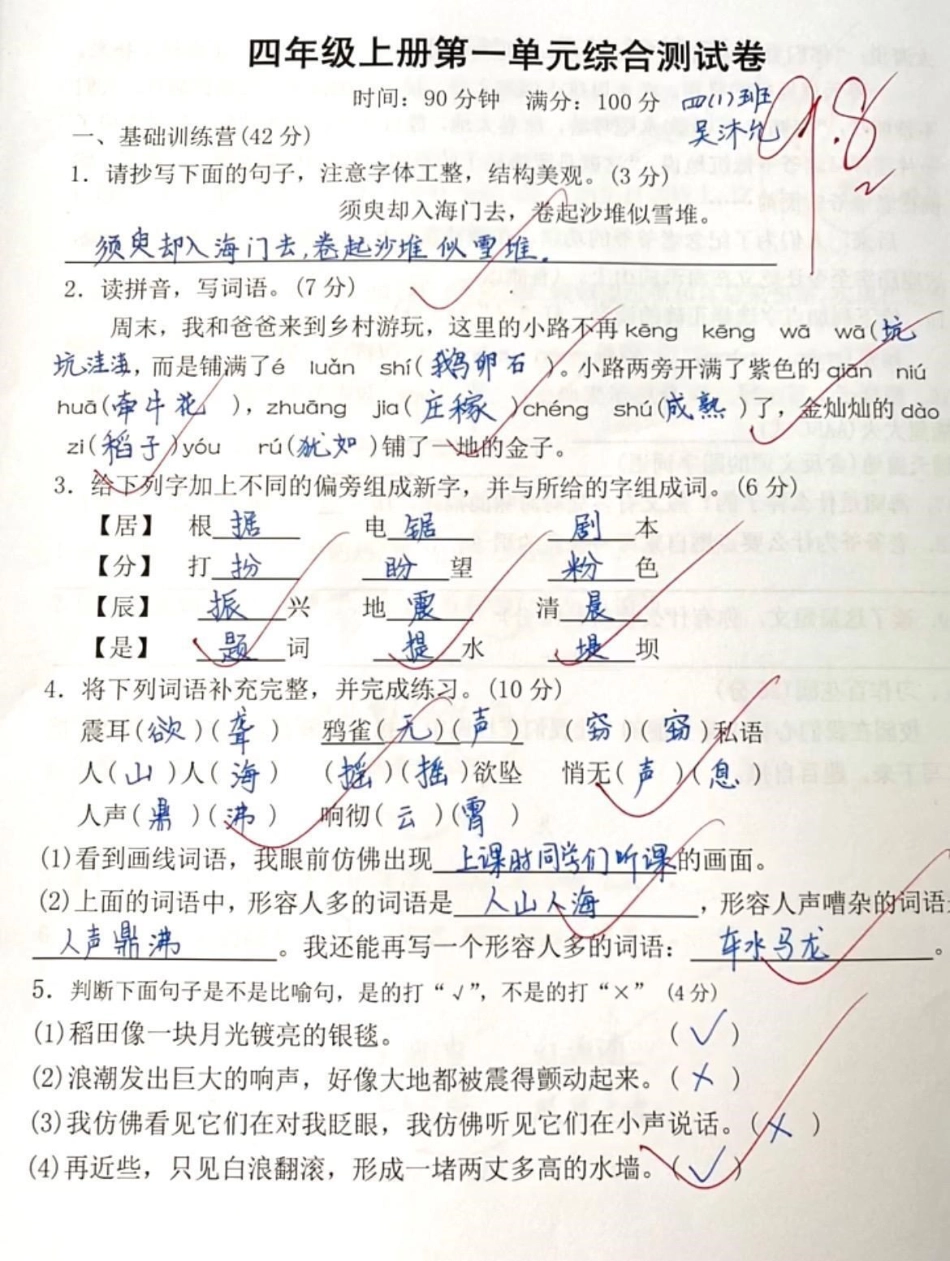 四年级上册第一单元综合测试卷
时间：90分钟 满分：100分 四(1)班
吴沐允 98
一、基础训练营(42分)
1．请抄写下面的句子，注意字体工整，结构美观。(3分)
须臾却入海门去，卷起沙堆似雪堆。
须臾却入海门去,卷起沙堆似雪堆.
2．读拼音，写词语。(7分)
周末，我和爸爸来到乡村游玩，这里的小路不再kēng kēng wā wā(坑
坑洼洼，而是铺满了é luǎn shí(鹅卵石)。小路两旁开满了紫色的qiān niú
huā(牵牛花)，zhuāng jia(庄稼)chéng shú(成熟)了，金灿灿的dào
zi(稻子)yóu rú(犹如)铺了一地的金子。
3．给下列字加上不同的偏旁组成新字，并与所给的字组成词。(6分)
【居】 根据 电锯 剧本
【分】 打扮 盼望 粉色
【辰】 振兴 地震 清晨
【是】 题词 提水 堤坝
4．将下列词语补充完整，并完成练习。(10分)
震耳(欲)(聋) 鸦雀(无)(声) (窃)(窃)私语
人(山)人(海) (摇)(摇)欲坠 悄无(声)(息)
人声(鼎)(沸) 响彻(云)(霄)
(1)看到画线词语，我眼前仿佛出现上课时同学们听课的画面。
(2)上面的词语中，形容人多的词语是人山人海，形容人声嘈杂的词语
人声鼎沸。我还能再写一个形容人多的词语：车水马龙。
5．判断下面句子是不是比喻句，是的打“√”，不是的打“×” (4分)
(1)稻田像一块月光镀亮的银毯。 (√)
(2)浪潮发出巨大的响声，好像大地都被震得颤动起来。(×)
(3)我仿佛看见它们在对我眨眼，我仿佛听见它们在小声说话。(×)
(4)再近些，只见白浪翻滚，形成一堵两丈多高的水墙。(√)